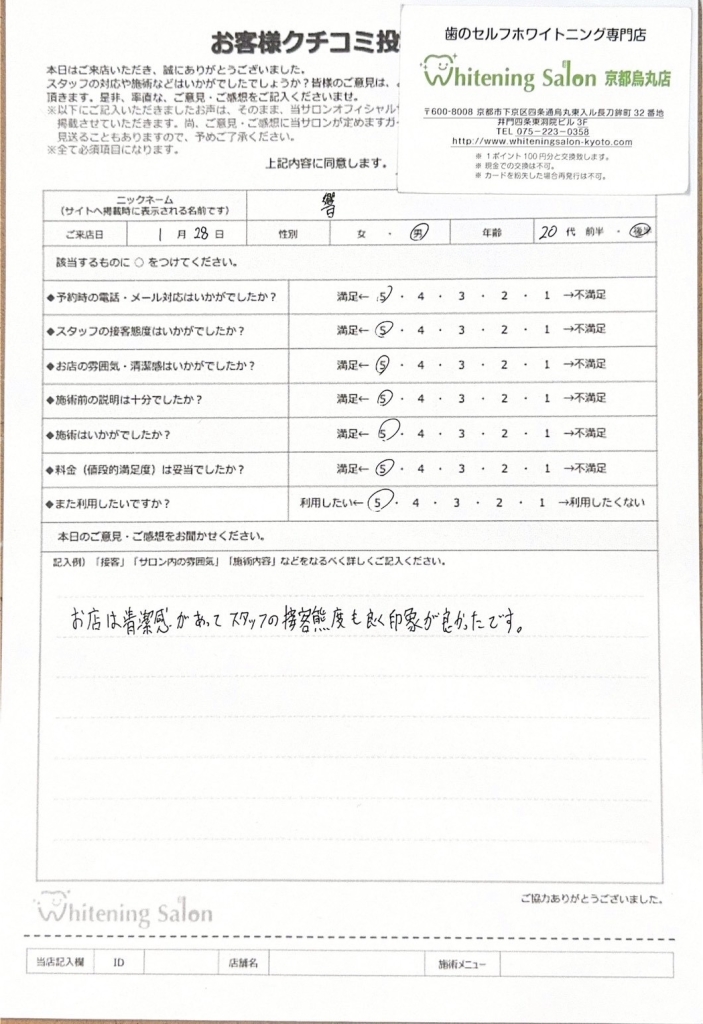 お客様クチコミ投
本日はご来店いただき、誠にありがとうございました。
スタッフの対応や施術などはいかがでしたでしょうか?皆様のご意見は、
頂きます。是非、率直な、ご意見・ご感想をご記入くださいませ。
※以下にご記入いただきましたお声は、そのまま、当サロンオフィシャル
掲載させていただきます。尚、ご意見・ご感想に当サロンが定めますガ
見送ることもありますので、予めご了承ください。
※全て必須項目になります。
上記内容に同意します。
歯のセルフホワイトニング専門店
Whitening Salon 京都烏丸店
〒600-8008 京都市下京区四条通烏丸東入ル長刀鉾町 32 番地
井門四条東洞院ビル 3F
TEL 075-223-0358
http://www.whiteningsalon-kyoto.com
※ 1ポイント100円分と交換致します。
※ 現金での交換は不可。
※ カードを紛失した場合再発行は不可。
ニックネーム
(サイトへ掲載時に表示される名前です)
響
ご来店日 1 月 28 日 性別 女 ・ 男 年齢 20 代 前半 ・ 後半
該当するものに ○ をつけてください。
◆予約時の電話・メール対応はいかがでしたか? 満足← 5 ・ 4 ・ 3 ・ 2 ・ 1 →不満足
◆スタッフの接客態度はいかがでしたか? 満足← 5 ・ 4 ・ 3 ・ 2 ・ 1 →不満足
◆お店の雰囲気・清潔感はいかがでしたか? 満足← 5 ・ 4 ・ 3 ・ 2 ・ 1 →不満足
◆施術前の説明は十分でしたか? 満足← 5 ・ 4 ・ 3 ・ 2 ・ 1 →不満足
◆施術はいかがでしたか? 満足← 5 ・ 4 ・ 3 ・ 2 ・ 1 →不満足
◆料金(値段的満足度)は妥当でしたか? 満足← 5 ・ 4 ・ 3 ・ 2 ・ 1 →不満足
◆また利用したいですか? 利用したい← 5 ・ 4 ・ 3 ・ 2 ・ 1 →利用したくない
本日のご意見・ご感想をお聞かせください。
記入例)「接客」「サロン内の雰囲気」「施術内容」などをなるべく詳しくご記入ください。
お店は清潔感があってスタッフの接客態度も良く印象が良かったです。
ご協力ありがとうございました。
Whitening Salon
当店記入欄 ID 店舗名 施術メニュー